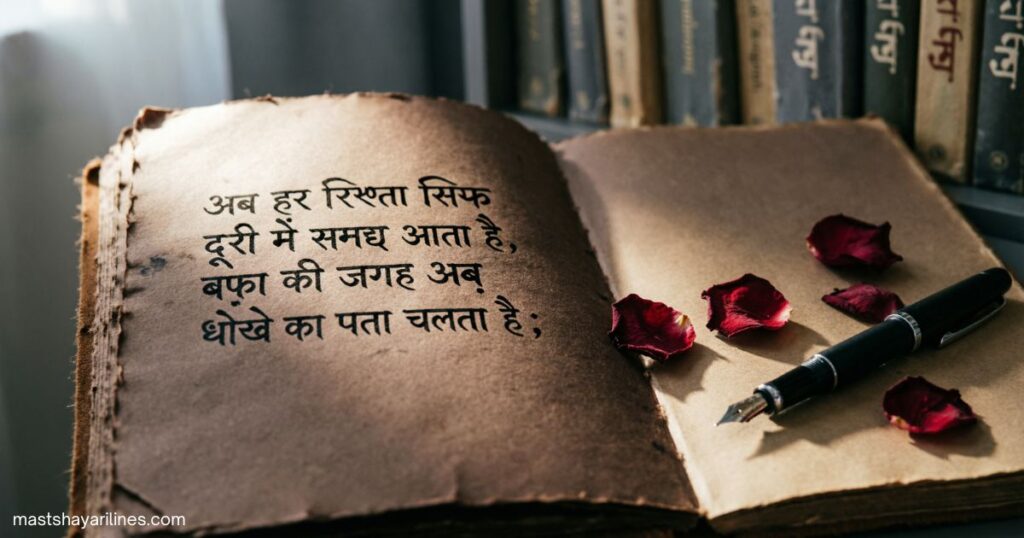 अब हर रिश्ता सिफ
दूरी में समद्य आता है,
बफ़ा की जगह अब़
धोखे का पता चलता है;
mastshayarilines.com